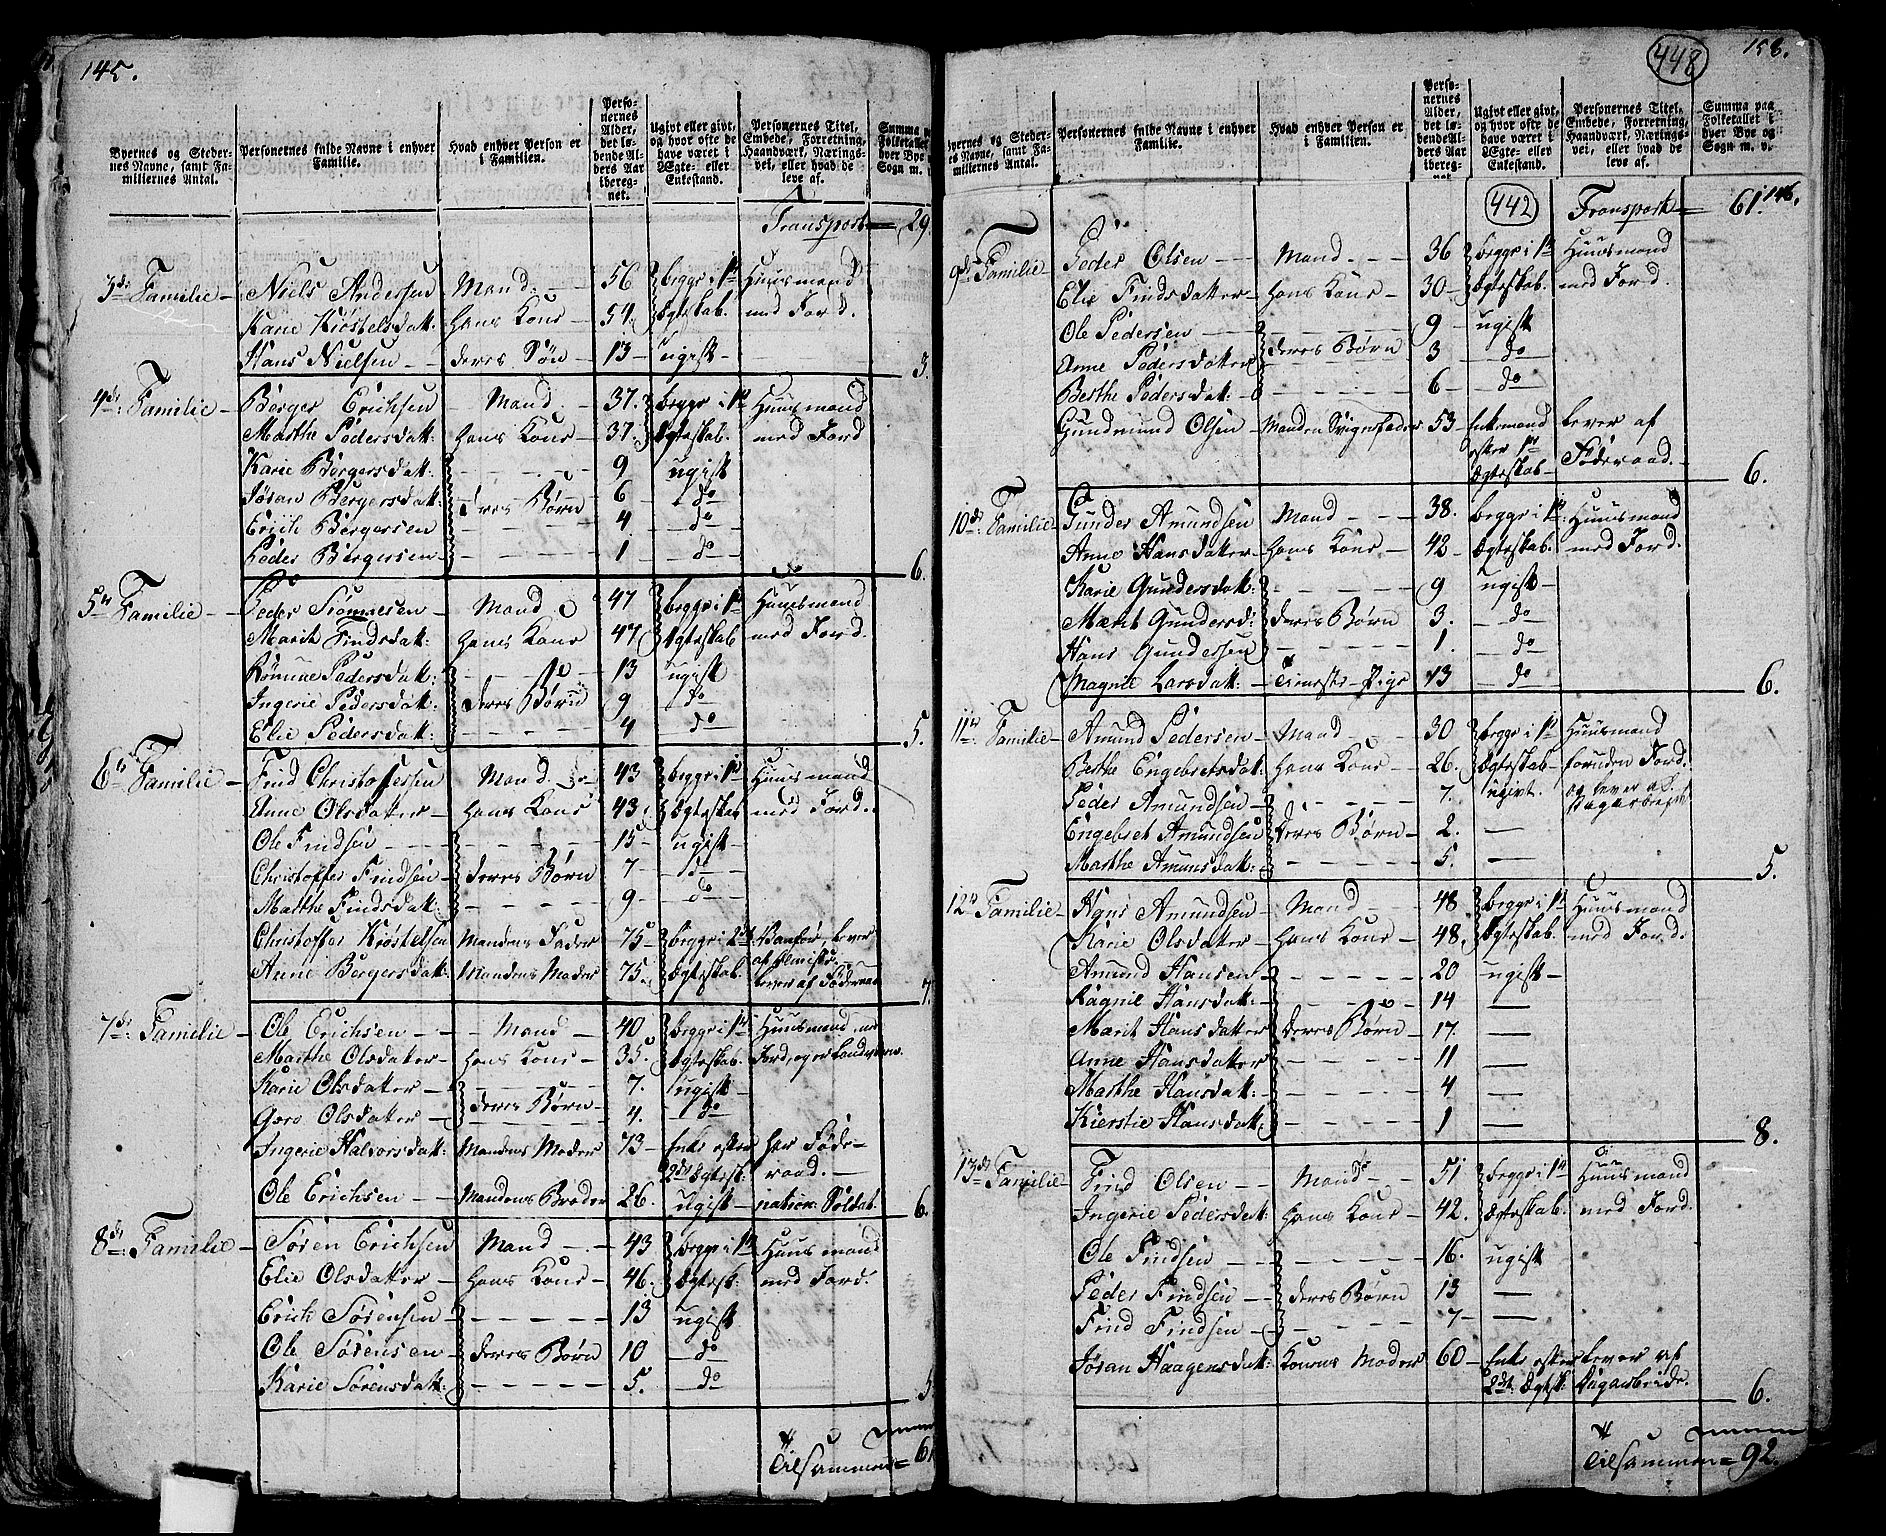 145.
Byernes og Stedernes Navne, samt Familiernes Antal.
Personernes fulde Navne i enhver Familie.
Hvad enhver Person er i Familien.
Personernes Alder, det løbende Alders Aar iberegnet.
Ugivt eller givt, og hvor ofte de have været i Ægte- eller Enkestand.
Personernes Titel, Embede, Forretning, Haandværk, Næringsvei, eller hvad de leve af.
Summa paa Folketallet i hver Bye og Sogn m. v.
Transport = 29
3de Familie – Niels Andersen Mand – 56 begge i 1ste Huusmand
Karie Kiøstelsdatt: hans Kone – 54 Ægteskab. med Jord.
Hans Nielsen – deres Søn – 13 ugift – 3.
4de Familie – Berger Erichsen – Mand – 37. begge i 1ste Huusmand
Marthe Pedersdatt: hans Kone – 37. Ægteskab. med Jord
Karie Bergersdatt: 9 ugift
Jøran Bergersdatt: deres Børn 6 do
Erich Bergersen 4 do
Peder Bergersen – 1 do 6.
5te Familie – Peder Siømnesen – Mand 47 begge i 1ste Huusmand
Marit Findsdatt: hans Kone 47 Ægteskab med Jord.
Pedersdatt: 13 ugift
Ingerie Pedersdatt: deres Børn 9 do
Elie Pedersdatt: 4 do 5.
6te Familie – Find Christoffersen Mand 43 begge i 1ste Huusmand
Anne Olsdatter – hans Kone 43 Ægteskab med Jord.
Ole Findsen 15 ugift –
Christoffer Findsen deres Børn 7 do
Marthe Findsdatt: 9 – do
Christoffer Kiøstelsen Mandens Fader 75 – begge i 2det Vanfør, lever
Anne Bergersdatt: Mandens Moder 75. Ægteskab. af
lever af Føderaad 7.
7de Familie – Ole Erichsen – Mand – 40 begge i 1ste Huusmand, med
Marthe Olsdatter – hans Kone – 35 Ægteskab. Jord, og er Landværn.
Karie Olsdatter – 7. ugift –
Goro Olsdatter – deres Børn – 4. do
Ingerie Halvorsdatt: Mandens Moder 73 – Enke efter har Føde-
2det Ægtesk: raad. –
Ole Erichsen – Mandens Broder 26. ugift – nation: Soldat. 6.
8de Familie – Søren Erichsen Mand – 43 begge i 1ste Huusmand
Elie Olsdatter – hans Kone – 46. Ægtesk: med Jord.
Erich Sørensen 13 ugift
Ole Sørensen – deres Børn 10 do
Karie Sørensdatt: 5. do 5
Summa
Tilsammen = 61
448
158.
Byernes og Stedernes Navne, samt Familiernes Antal.
Personernes fulde Navne i enhver Familie.
Hvad enhver Person er i Familien.
Personernes Alder, det løbende Alders Aar iberegnet.
Ugivt eller givt, og hvor ofte de have været i Ægte- eller Enkestand.
Personernes Titel, Embede, Forretning, Haandværk, Næringsvei, eller hvad de leve af.
Summa paa Folketallet i hver Bye og Sogn m. v.
442 Transport = 61. 146.
9de Familie – Peder Olsen – Mand – 36 begge i 1ste Huusmand
Elie Findsdatter – hans Kone – 30 – Ægteskab. med Jord.
Ole Pedersen – 9 – ugift
Anne Pedersdatter deres Børn 3 do
Berthe Pedersdatt: – 6 – do
Gundmund Olsen – Mandens Svigerfader 53 – Enkemand lever af
efter 1ste Føderaad.
Ægteskab – 6.
10de Familie – Gunder Amundsen Mand – 38. begge i 1ste Huusmand
Anne Hansdatter – hans Kone – 42 – Ægteskab. med Jord.
Karie Gundersdatt: 9 ugift –
Marit Gundersd: deres Børn 3. do
Hans Gundersen 1. do
Magnil Larsdatt: – Tieneste-Pige 43 do 6.
11te Familie – Amund Pedersen – Mand – 30 begge i 1ste Huusmand
Berthe Engebretsdatt: hans Kone – 26. Ægteskab – foruden Jord.
Peder Amundsen – 7. ugivt. og lever af
Engebret Amundsen deres Børn – 2. — Dagarbeyd
Marthe Amunsdatt: 5. — 5.
12te Familie – Hans Amundsen – Mand – 48 begge i 1ste Huusmand
Karie Olsdatter – hans Kone – 48. Ægteskab. med Jord.
Amund Hansen – 20 ugift –
Ragnil Hansdatt: 14 —
Marit Hansdatter deres Børn – 17. —
Anne Hansdatter 11 —
Marthe Hansdatt: 4 —
Kierstie Hansdatt: 1 — 8.
13de Familie – Find Olsen – Mand – 51 begge i 1ste Huusmand
Ingerie Pedersdatt: hans Kone – 42. Ægteskab. med Jord.
Ole Findsen – 16. ugift
Peder Findsen – deres Børn 13 —
Find Findsen – 7 – —
Jøran Haagensdatt: Konens Moder 60 – Enke efter lever af
2det Ægtesk: Dagarbeide. 6.
Summa
Tilsammen = 92.